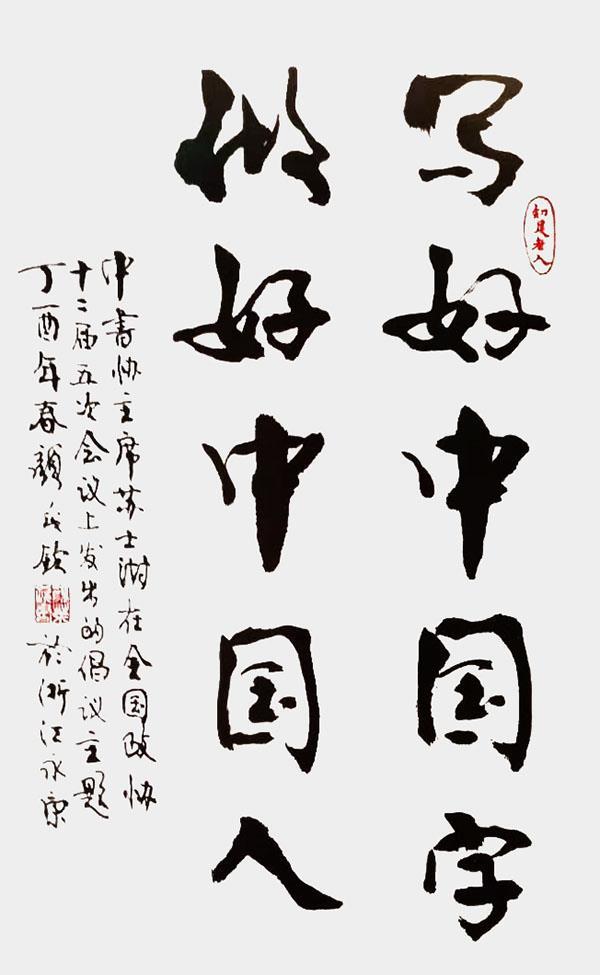 写好中国字
知足老人
做好中国人
中书协主席苏士澍在全国政协
十二届五次会议上发出的倡议主题
丁酉年春颜 铨 於浙江永康